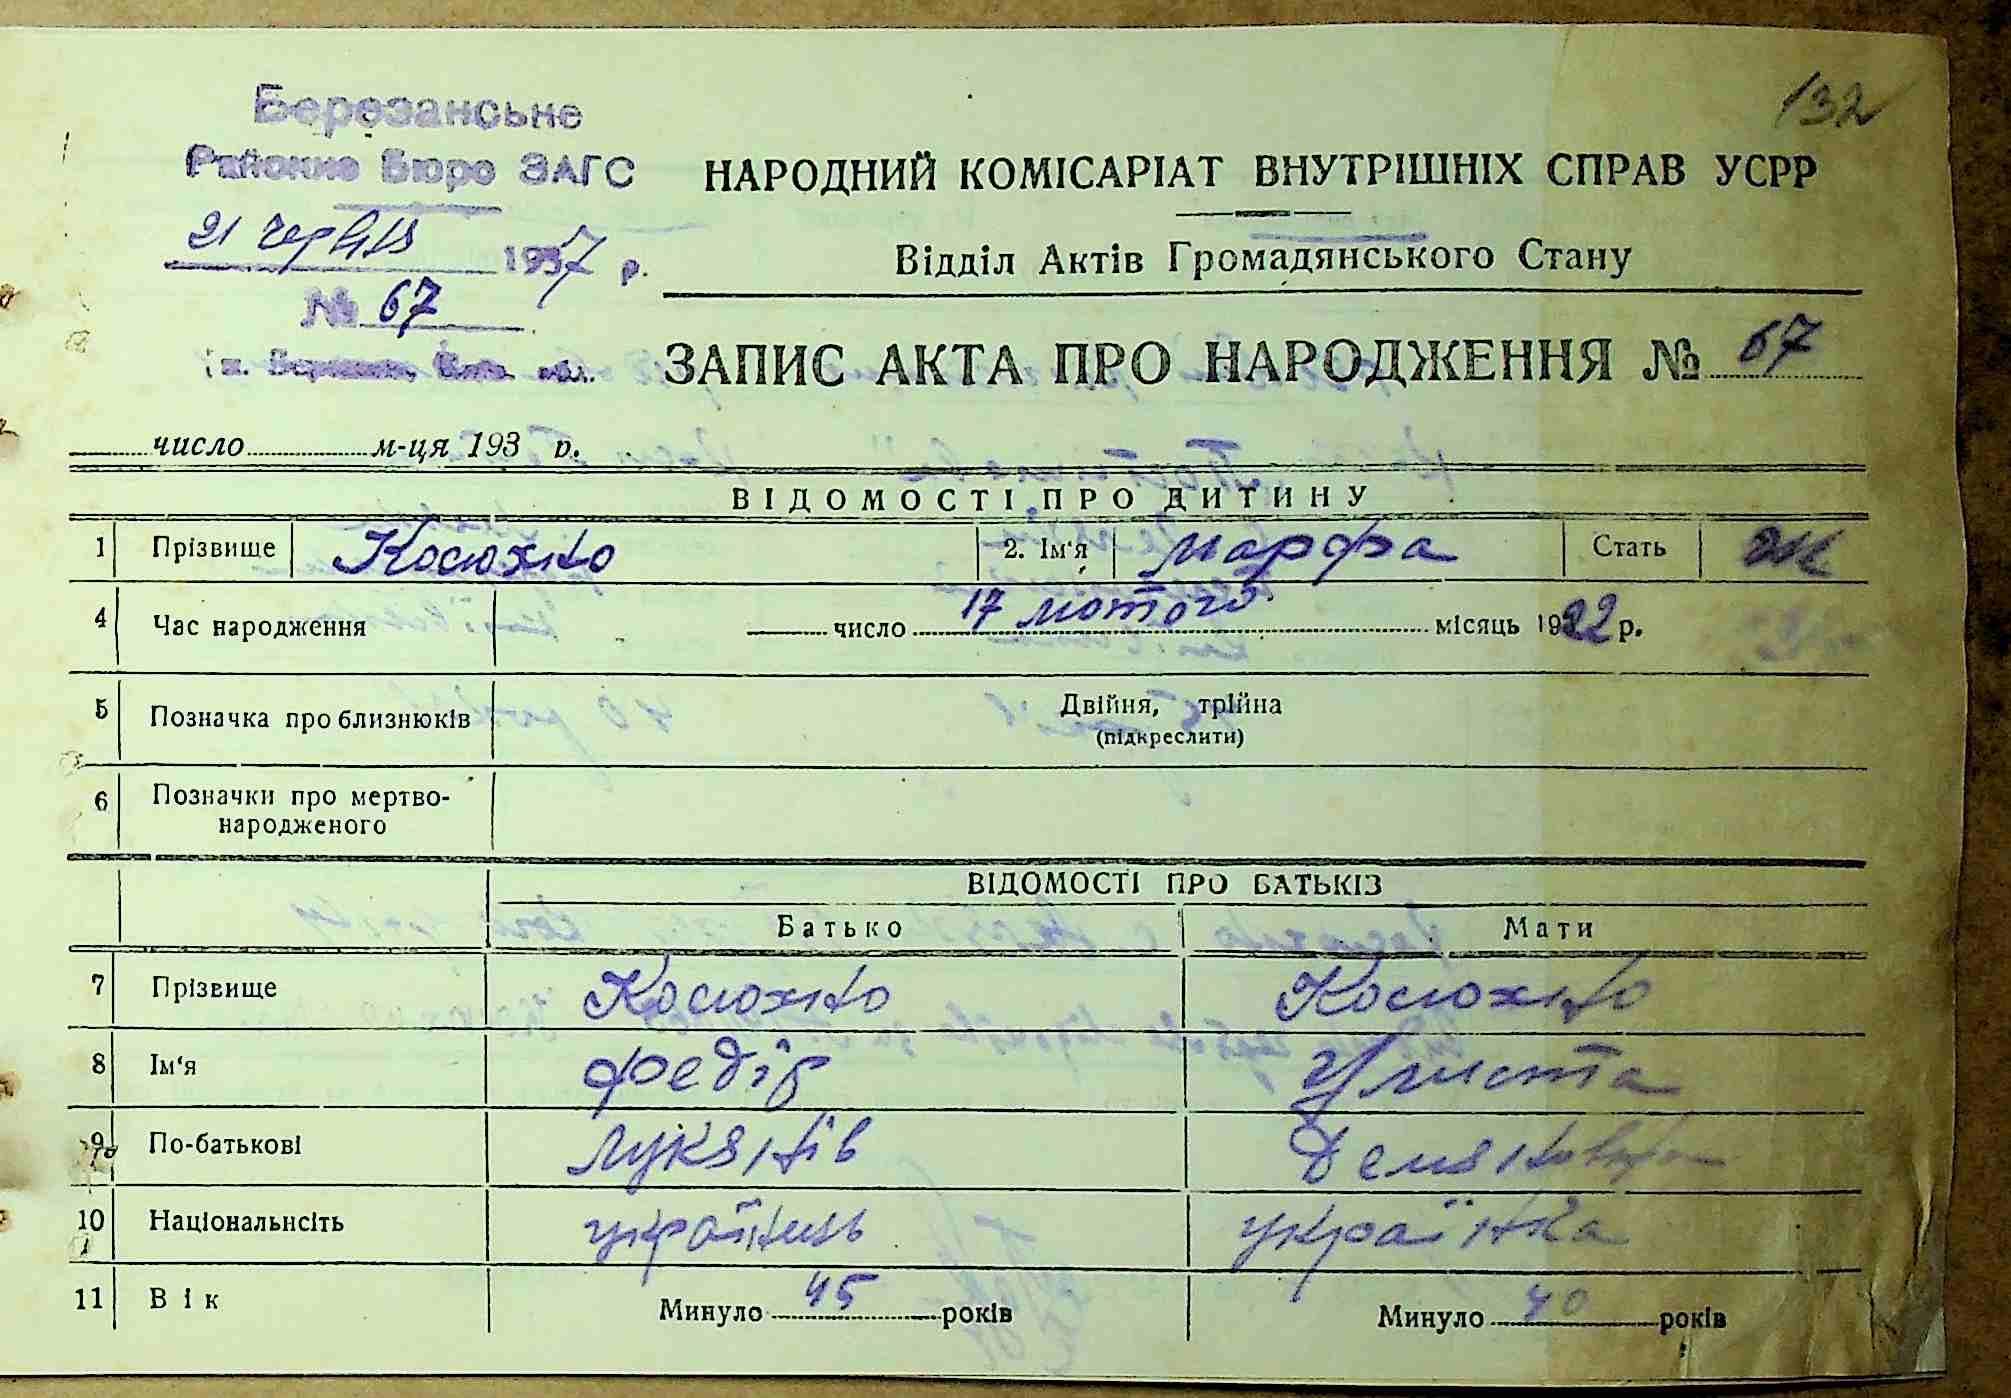 132
Березанське
Районне Бюро ЗАГС
21 червня 1937 р.
№ 67
НАРОДНИЙ КОМІСАРІАТ ВНУТРІШНІХ СПРАВ УСРР
Відділ Актів Громадянського Стану
ЗАПИС АКТА ПРО НАРОДЖЕННЯ № 67
число м-ця 193 р.
ВІДОМОСТІ ПРО ДИТИНУ
1 Прізвище Косюхно 2. Ім'я Марфа Стать Ж
4 Час народження число 17 лютого місяць 1922 р.
5 Позначка про близнюків Двійня, трійна
(підкреслити)
6 Позначки про мертво-
народженого
ВІДОМОСТІ ПРО БАТЬКІВ
Батько Мати
7 Прізвище Косюхно Косюхно
8 Ім'я Федір
9 По-батькові Лукянів Демянівна
10 Національнсіть українець українка
11 Вік Минуло 45 років Минуло 40 років